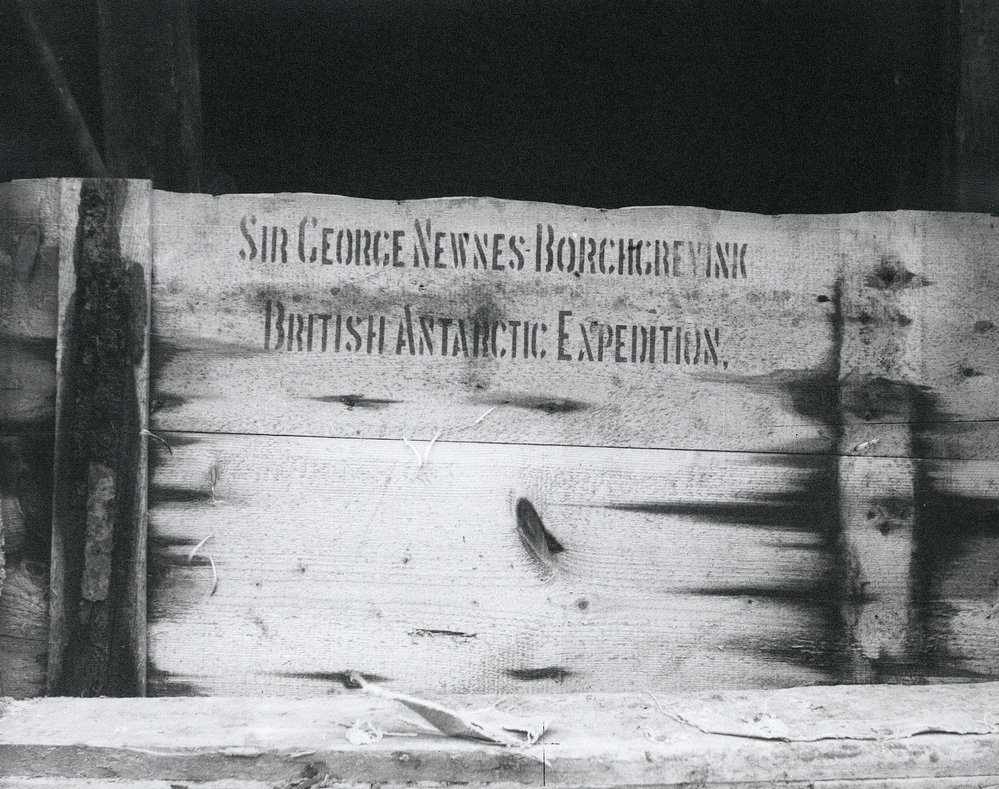 SIR GEORGE NEWNES-BORCHGREVINK
BRITISH ANTARCTIC EXPEDITION,